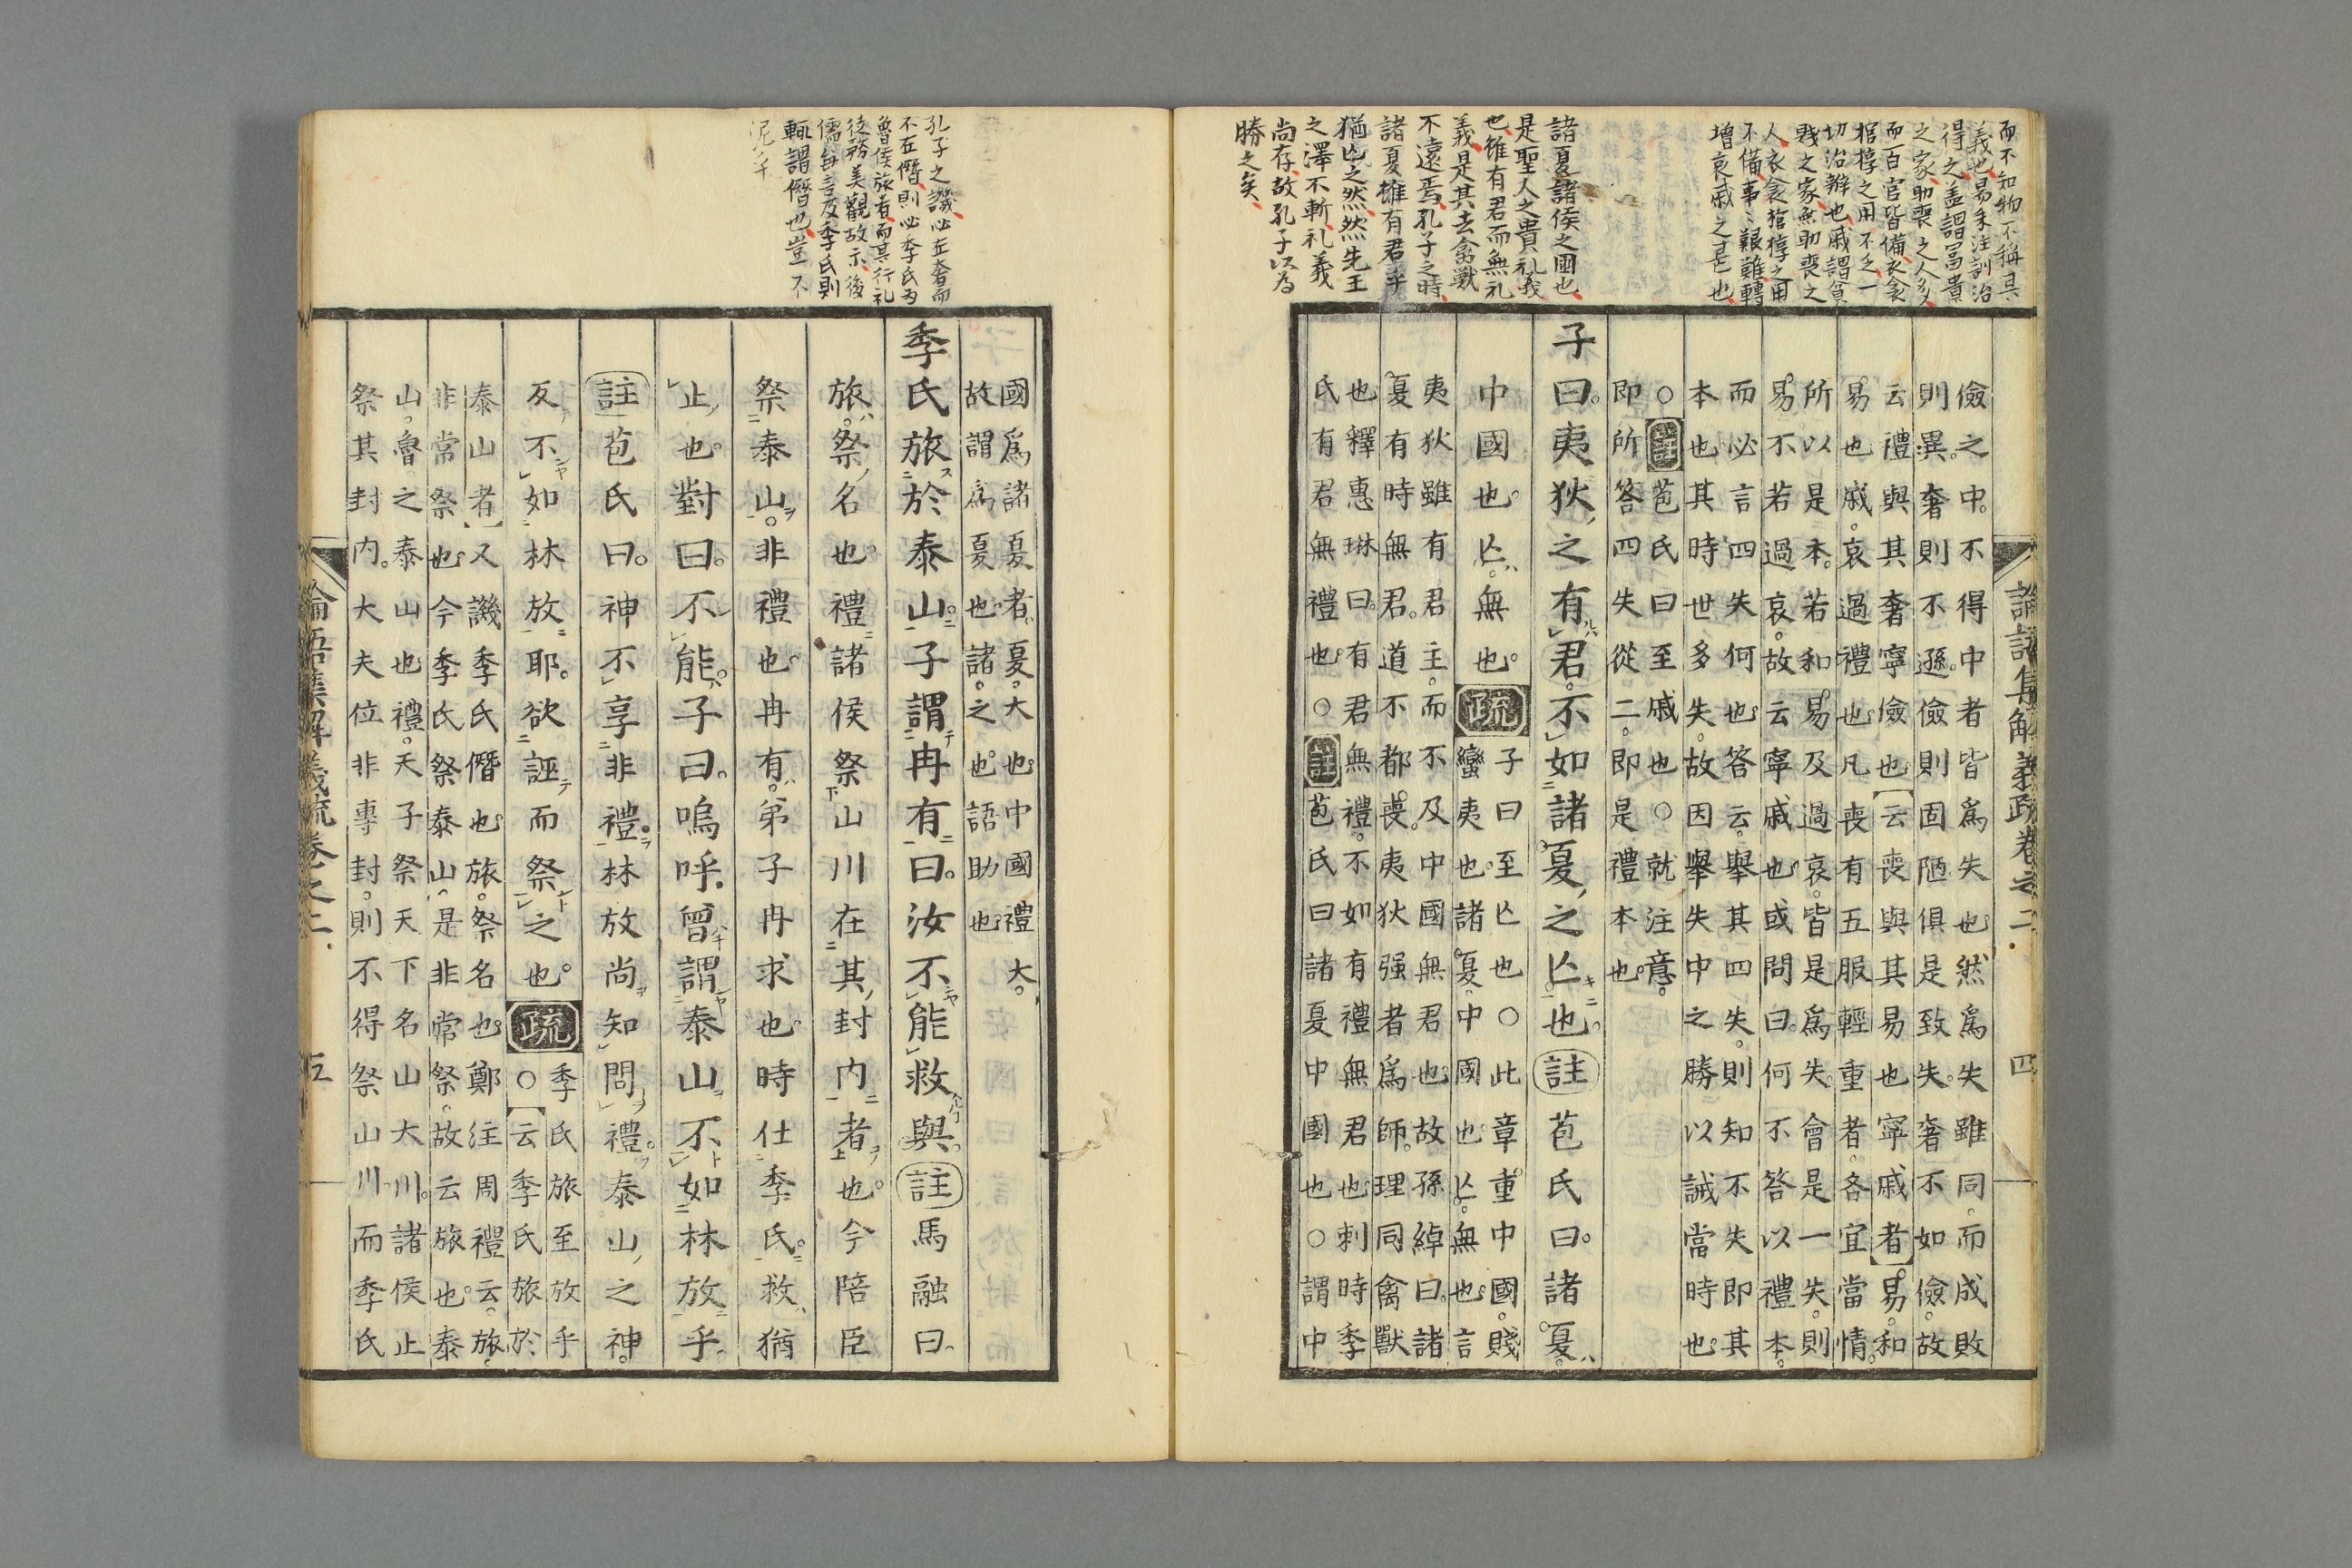 而不知物不稱其
義也易朱注訓治
得之盖謂冨貴
之家助喪之人多
而百官皆備衣衾
棺椁之用不乏一
切治辦也戚謂貧
賤之家無助喪之
人衣衾棺椁之用
不備事〻艱難轉
增哀戚之甚也
諸夏諸侯之國也
是聖人之貴礼義
也雖有君而無礼
義是其去禽獸
不遠焉孔子之時
諸夏雖有君乎
猶亾之然然先王
之澤不斬礼義
尚存故孔子以為
勝之矣
論語集解義疏卷之二 四
儉之中不得中者皆爲失也然爲失雖同而成敗
則異奢則不遜儉則固陋俱是致失奢不如儉故
云禮與其奢寧儉也云喪與其易也寧戚者易和
易也戚哀過禮也凡喪有五服輕重者各宜當情
所以是本若和易及過哀皆是爲失會是一失則
易不若過哀故云寧戚也或問曰何不答以禮本
而必言四失何也答云舉其四失則知不失即其
本也其時世多失故因舉失中之勝以誡當時也
○註苞氏曰至戚也○就注意
即所答四失從二即是禮本也
子曰夷狄之有君不如諸夏之亾也註苞氏曰諸夏
中國也亾無也疏
子曰至亾也○此章重中國賤
蠻夷也諸夏中國也亾無也言
夷狄雖有君主而不及中國無君也故孫綽曰諸
夏有時無君道不都喪夷狄强者爲師理同禽獸
也釋惠琳曰有君無禮不如有禮無君也刺時季
氏有君無禮也○註苞氏曰諸夏中國也○謂中
孔子之譏必在奢而
不在僭則必季氏爲
魯侯旅者而其行礼
徒務美觀故示後
儒每言及季氏則
輒謂僭也豈不
泥乎
國爲諸夏者夏大也中國禮大
故謂爲夏也諸之也語助也
季氏旅於泰山子謂冉有曰汝不能救與註馬融曰
旅祭名也禮諸侯祭山川在其封内者也今陪臣
祭泰山非禮也冉有弟子冉求也時仕季氏救猶
止也對曰不能子曰嗚呼曾謂泰山不如林放乎
註苞氏曰神不享非禮林放尚知問禮泰山之神
反不如林放耶欲誣而祭之也疏
季氏旅至放乎
○云季氏旅於
泰山者又譏季氏僭也旅祭名也鄭注周禮云旅
非常祭也今季氏祭泰山是非常祭故云旅也泰
山魯之泰山也禮天子祭天下名山大川諸侯止
祭其封内大夫位非專封則不得祭山川而季氏
論語集解義疏卷之二 五